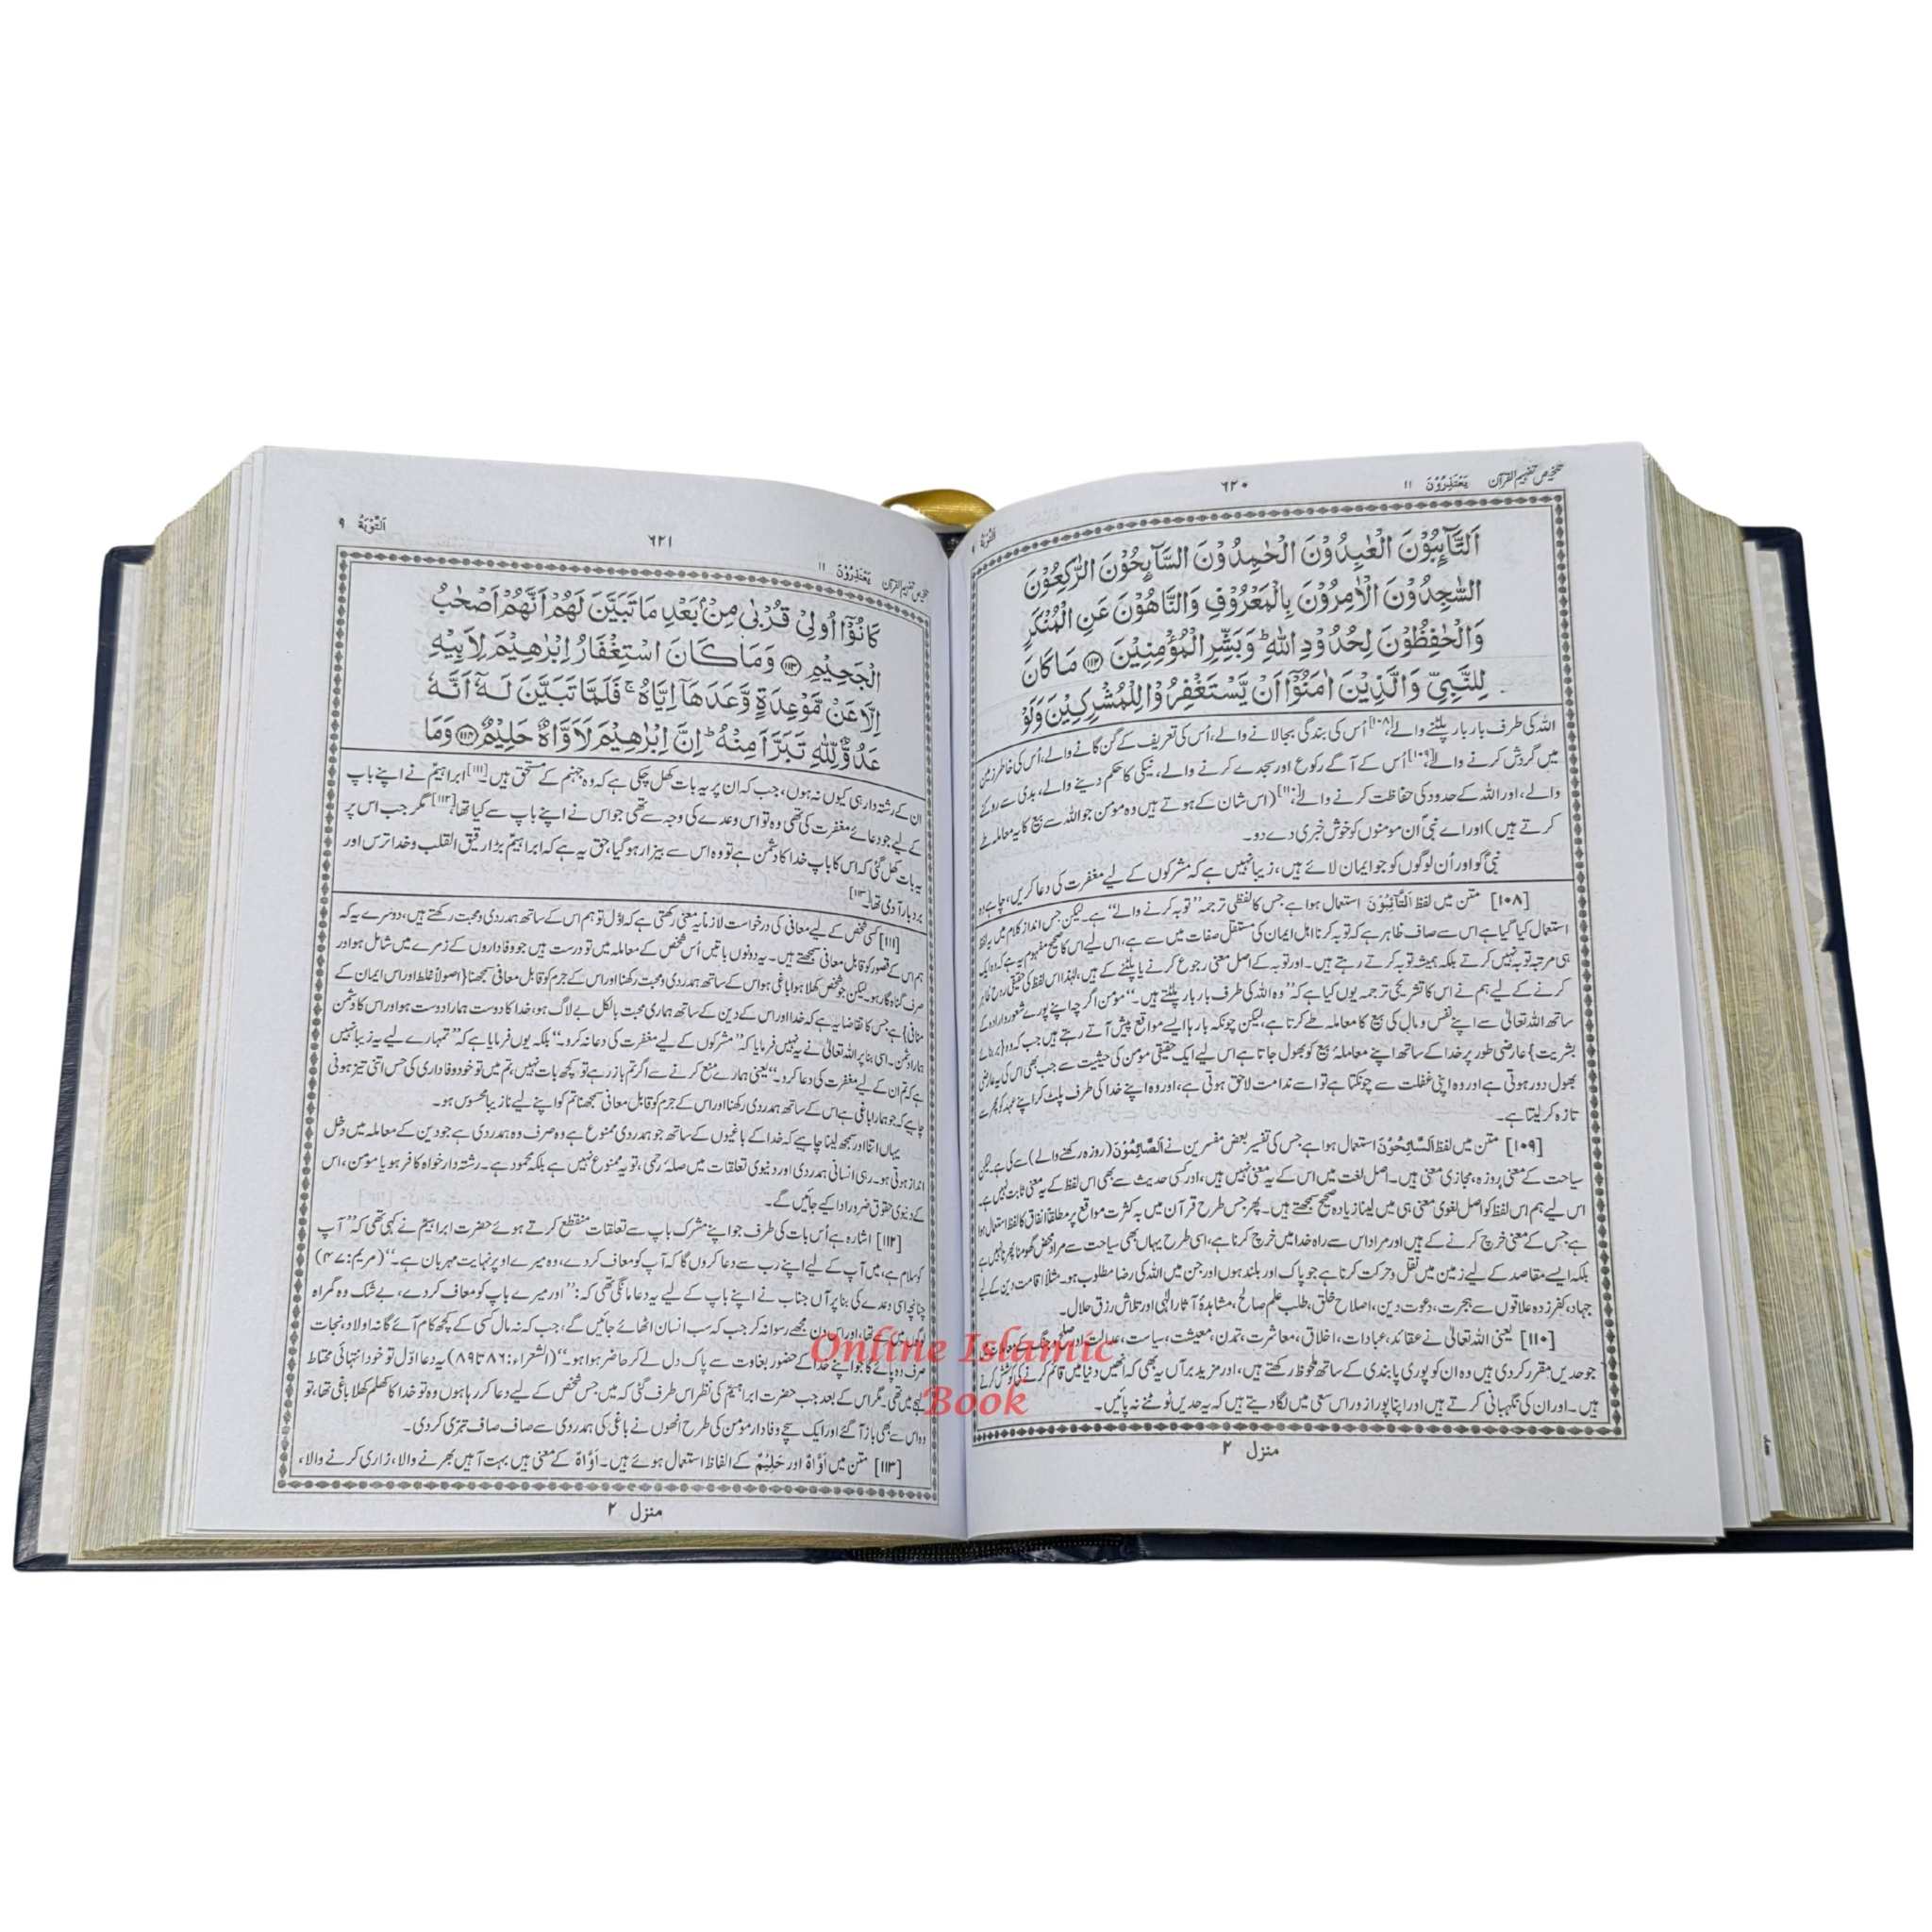 تلخیص تفہیم القرآن یَعْتَذِرُوْنَ ۱۱
۶۲۰
اَلتَّوْبَةُ ۹
اَلتَّآىِٕبُوْنَ الْعٰبِدُوْنَ الْحٰمِدُوْنَ السَّآىِٕحُوْنَ الرّٰكِعُوْنَ
السّٰجِدُوْنَ الْاٰمِرُوْنَ بِالْمَعْرُوْفِ وَالنَّاهُوْنَ عَنِ الْمُنْكَرِ
وَالْحٰفِظُوْنَ لِحُدُوْدِ اللّٰهِ ؕ وَبَشِّرِ الْمُؤْمِنِیْنَ ﴿۱۱۲﴾ مَا كَانَ
لِلنَّبِیِّ وَالَّذِیْنَ اٰمَنُوْۤا اَنْ یَّسْتَغْفِرُوْا لِلْمُشْرِكِیْنَ وَلَوْ
اللہ کی طرف بار بار پلٹنے والے،[۱۰۸] اُس کی بندگی بجا لانے والے، اُس کی تعریف کے گن گانے والے، اُس کی خاطر زمین
میں گردش کرنے والے،[۱۰۹] اُس کے آگے رکوع اور سجدے کرنے والے، نیکی کا حکم دینے والے، بدی سے روکنے
والے، اور اللہ کے حدود کی حفاظت کرنے والے،[۱۱۰] (اس شان کے ہوتے ہیں وہ مومن جو اللہ سے بیع کا یہ معاملہ طے
کرتے ہیں) اور اے نبیؐ ان مومنوں کو خوش خبری دے دو۔
نبیؐ کو اور اُن لوگوں کو جو ایمان لائے ہیں، زیبا نہیں ہے کہ مشرکوں کے لیے مغفرت کی دعا کریں، چاہے وہ
[۱۰۸] متن میں لفظ اَلتَّآئِبُوْنَ استعمال ہوا ہے جس کا لفظی ترجمہ ’’توبہ کرنے والے‘‘ ہے۔ لیکن جس اندازِ کلام میں یہ لفظ
استعمال کیا گیا ہے اس سے صاف ظاہر ہے کہ توبہ کرنا اہل ایمان کی مستقل صفات میں سے ہے، اس لیے اس کا صحیح مفہوم یہ ہے کہ وہ ایک
ہی مرتبہ توبہ نہیں کرتے بلکہ ہمیشہ توبہ کرتے رہتے ہیں۔ اور توبہ کے اصل معنی رجوع کرنے یا پلٹنے کے ہیں، لہٰذا اس لفظ کی حقیقی روح ظاہر
کرنے کے لیے ہم نے اس کا تشریحی ترجمہ یوں کیا ہے کہ ’’وہ اللہ کی طرف بار بار پلٹتے ہیں۔‘‘ مومن اگرچہ اپنے پورے شعور و ارادہ کے
ساتھ اللہ تعالیٰ سے اپنے نفس و مال کی بیع کا معاملہ طے کرتا ہے، لیکن چونکہ بارہا ایسے مواقع پیش آتے رہتے ہیں جب کہ وہ {بر بنائے
بشریت} عارضی طور پر خدا کے ساتھ اپنے معاملۂ بیع کو بھول جاتا ہے اس لیے ایک حقیقی مومن کی حیثیت سے جب بھی اس کی یہ عارضی
بھول دور ہوتی ہے اور وہ اپنی غفلت سے چونکتا ہے تو اسے ندامت لاحق ہوتی ہے، اور وہ اپنے خدا کی طرف پلٹ کر اپنے عہد کو پھر سے
تازہ کر لیتا ہے۔
[۱۰۹] متن میں لفظ اَلسَّآئِحُوْنَ استعمال ہوا ہے جس کی تفسیر بعض مفسرین نے اَلصَّآئِمُوْنَ (روزہ رکھنے والے) سے کی ہے۔ لیکن
سیاحت کے معنی روزہ، مجازی معنی ہیں۔ اصل لغت میں اس کے یہ معنی نہیں ہیں، اور کسی حدیث سے بھی اس لفظ کے یہ معنی ثابت نہیں ہے۔
اس لیے ہم اس لفظ کو اصل لغوی معنی ہی میں لینا زیادہ صحیح سمجھتے ہیں۔ پھر جس طرح قرآن میں بہ کثرت مواقع پر مطلقاً انفاق کا لفظ استعمال ہوا
ہے جس کے معنی خرچ کرنے کے ہیں اور مراد اس سے راہ خدا میں خرچ کرنا ہے، اسی طرح یہاں بھی سیاحت سے مراد محض گھومنا پھرنا نہیں ہے
بلکہ ایسے مقاصد کے لیے زمین میں نقل و حرکت کرنا ہے جو پاک اور بلند ہوں اور جن میں اللہ کی رضا مطلوب ہو۔ مثلاً اقامت دین کے لیے
جہاد، کفر زدہ علاقوں سے ہجرت، دعوت دین، اصلاح خلق، طلب علم صالح، مشاہدۂ آثار الٰہی اور تلاش رزق حلال۔
[۱۱۰] یعنی اللہ تعالیٰ نے عقائد، عبادات، اخلاق، معاشرت، تمدن، معیشت، سیاست، عدالت اور صلح و جنگ کے معاملات میں
جو حدیں مقرر کر دی ہیں وہ ان کو پوری پابندی کے ساتھ ملحوظ رکھتے ہیں، اور مزید برآں یہ بھی کہ انھیں دنیا میں قائم کرنے کی کوشش کرتے
ہیں۔ اور ان کی نگہبانی کرتے ہیں اور اپنا پورا زور اس سعی میں لگا دیتے ہیں کہ یہ حدیں ٹوٹنے نہ پائیں۔
منزل ۲
تلخیص تفہیم القرآن یَعْتَذِرُوْنَ ۱۱
۶۲۱
اَلتَّوْبَةُ ۹
كَانُوْۤا اُولِیْ قُرْبٰی مِنْۢ بَعْدِ مَا تَبَیَّنَ لَهُمْ اَنَّهُمْ اَصْحٰبُ
الْجَحِیْمِ ﴿۱۱۳﴾ وَمَا كَانَ اسْتِغْفَارُ اِبْرٰهِیْمَ لِاَبِیْهِ
اِلَّا عَنْ مَّوْعِدَةٍ وَّعَدَهَاۤ اِیَّاهُ ۚ فَلَمَّا تَبَیَّنَ لَهٗۤ اَنَّهٗ
عَدُوٌّ لِّلّٰهِ تَبَرَّاَ مِنْهُ ؕ اِنَّ اِبْرٰهِیْمَ لَاَوَّاهٌ حَلِیْمٌ ﴿۱۱۴﴾ وَمَا
ان کے رشتہ دار ہی کیوں نہ ہوں، جب کہ ان پر یہ بات کھل چکی ہے کہ وہ جہنم کے مستحق ہیں۔[۱۱۱] ابراہیمؑ نے اپنے باپ
کے لیے جو دعائے مغفرت کی تھی وہ تو اس وعدے کی وجہ سے تھی جو اس نے اپنے باپ سے کیا تھا،[۱۱۲] مگر جب اس پر
یہ بات کھل گئی کہ اس کا باپ خدا کا دشمن ہے تو وہ اس سے بیزار ہو گیا، حق یہ ہے کہ ابراہیمؑ بڑا رقیق القلب و خدا ترس اور
بردبار آدمی تھا۔[۱۱۳]
[۱۱۱] کسی شخص کے لیے معافی کی درخواست لازماً یہ معنی رکھتی ہے کہ اوّل تو ہم اس کے ساتھ ہمدردی و محبت رکھتے ہیں، دوسرے یہ کہ
ہم اس کے قصور کو قابل معافی سمجھتے ہیں۔ یہ دونوں باتیں اُس شخص کے معاملہ میں تو درست ہیں جو وفاداروں کے زمرے میں شامل ہو اور
صرف گناہ گار ہو۔ لیکن جو شخص کھلا ہوا باغی ہو اس کے ساتھ ہمدردی و محبت رکھنا اور اس کے جرم کو قابل معافی سمجھنا {اصولاً غلط اور اس ایمان کے
منافی} ہے جس کا تقاضا یہ ہے کہ خدا اور اس کے دین کے ساتھ ہماری محبت بالکل بے لاگ ہو، خدا کا دوست ہمارا دوست ہو اور اس کا دشمن
ہمارا دشمن۔ اسی بنا پر اللہ تعالیٰ نے یہ نہیں فرمایا کہ ’’مشرکوں کے لیے مغفرت کی دعا نہ کرو۔‘‘ بلکہ یوں فرمایا ہے کہ ’’تمہارے لیے یہ زیبا نہیں
ہے کہ تم ان کے لیے مغفرت کی دعا کرو۔‘‘ یعنی ہمارے منع کرنے سے اگر تم باز رہے تو کچھ بات نہیں، تم میں تو خود وفاداری کی حس اتنی تیز ہونی
چاہیے کہ جو ہمارا باغی ہے اس کے ساتھ ہمدردی رکھنا اور اس کے جرم کو قابل معافی سمجھنا تم کو اپنے لیے نازیبا محسوس ہو۔
یہاں اتنا اور سمجھ لینا چاہیے کہ خدا کے باغیوں کے ساتھ جو ہمدردی ممنوع ہے وہ صرف وہ ہمدردی ہے جو دین کے معاملہ میں دخل
انداز ہوتی ہو۔ رہی انسانی ہمدردی اور دنیوی تعلقات میں صلۂ رحمی، تو یہ ممنوع نہیں ہے بلکہ محمود ہے۔ رشتہ دار خواہ کافر ہو یا مومن، اس
کے دنیوی حقوق ضرور ادا کیے جائیں گے۔
[۱۱۲] اشارہ ہے اُس بات کی طرف جو اپنے مشرک باپ سے تعلقات منقطع کرتے ہوئے حضرت ابراہیمؑ نے کہی تھی کہ ’’آپ
کو سلام ہے، میں آپ کے لیے اپنے رب سے دعا کروں گا کہ آپ کو معاف کر دے، وہ میرے اوپر نہایت مہربان ہے۔‘‘ (مریم: ۴۷)
چنانچہ اسی وعدے کی بنا پر آں جناب نے اپنے باپ کے لیے یہ دعا مانگی تھی کہ: ’’اور میرے باپ کو معاف کر دے، بے شک وہ گمراہ
لوگوں میں سے تھا، اور اس دن مجھے رسوا نہ کر جب کہ سب انسان اٹھائے جائیں گے، جب کہ نہ مال کسی کے کچھ کام آئے گا نہ اولاد، نجات
صرف وہ پائے گا جو اپنے خدا کے حضور بغاوت سے پاک دل لے کر حاضر ہوا ہو۔‘‘ (الشعراء: ۸۶ تا ۸۹) یہ دعا اوّل تو خود انتہائی محتاط
لہجے میں تھی۔ مگر اس کے بعد جب حضرت ابراہیمؑ کی نظر اس طرف گئی کہ میں جس شخص کے لیے دعا کر رہا ہوں وہ تو خدا کا کھلم کھلا باغی تھا، تو
وہ اس سے بھی باز آ گئے اور ایک سچے وفادار مومن کی طرح انھوں نے باغی کی ہمدردی سے صاف صاف تبرّی کر دی۔
[۱۱۳] متن میں اَوَّاہٌ اور حَلِیْمٌ کے الفاظ استعمال ہوئے ہیں۔ اَوَّاہٌ کے معنی ہیں بہت آہیں بھرنے والا، زاری کرنے والا،
منزل ۲
Online Islamic
Book